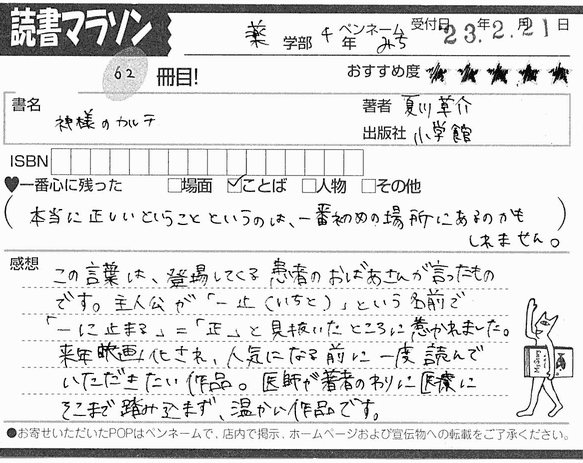 読書マラソン
薬 学部 4 年 ペンネーム みち 受付日 23年2月21日
62 冊目! おすすめ度 ★★★★★
書名 神様のカルテ 著者 夏川草介
出版社 小学館
ISBN
♥一番心に残った □場面 ☑ことば □人物 □その他
(本当に正しいということというのは、一番初めの場所にあるのかも
しれません。)
感想
この言葉は、登場してくる患者のおばあさんが言ったもの
です。主人公が「一止(いちと)」という名前で
「一に止まる」=「正」と見抜いたところに惹かれました。
来年映画化され、人気になる前に一度読んで
いただきたい作品。医師が著者のわりに医療に
そこまで踏み込まず、温かい作品です。
●お寄せいただいたPOPはペンネームで、店内で掲示、ホームページおよび宣伝物への転載をご了承ください。